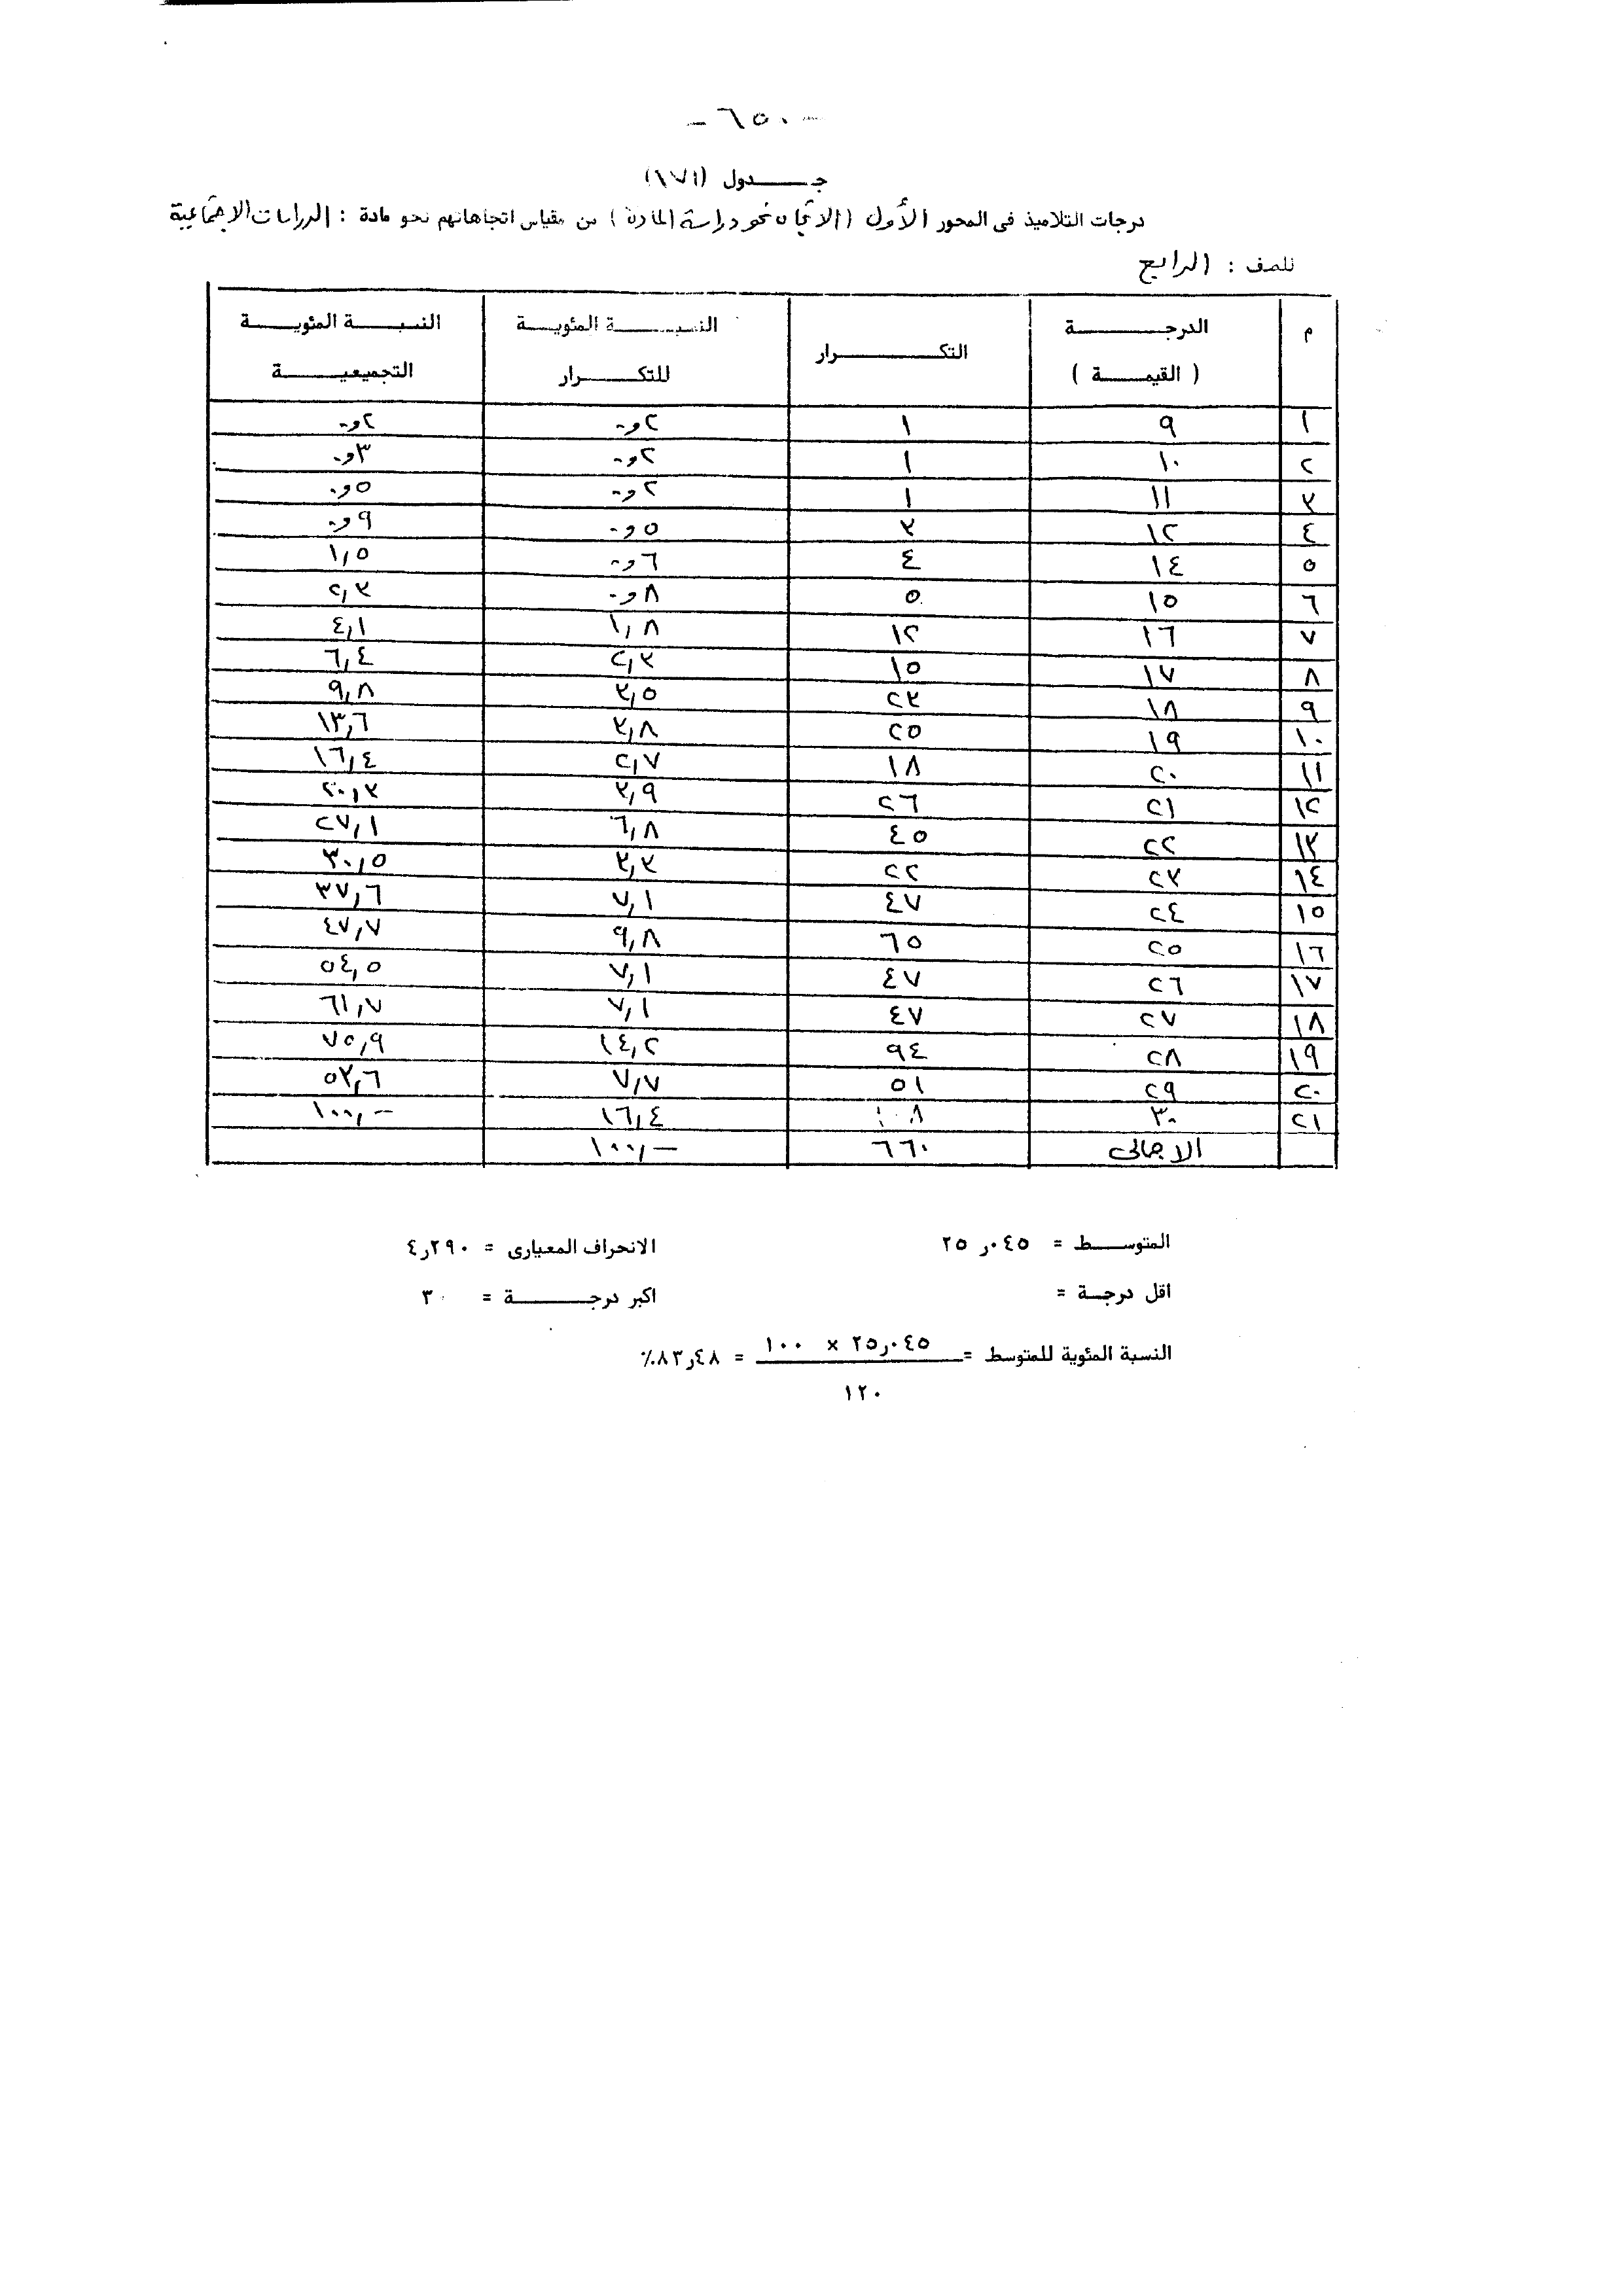 - ٦٥٠ -
جـــدول (١٧١)
درجات التلاميذ فى المحور الأول (الاتجاه نحو دراسة المادة) من مقياس اتجاهاتهم نحو مادة : الدراسات الاجتماعية
للصف : الرابع
م الدرجـــة (القيمـــة) التكـــرار النسبـــة المئويـــة للتكـــرار النسبـــة المئويـــة التجميعيـــة
١ ٩ ١ ٢و- ٢و-
٢ ١٠ ١ ٢و- ٣و-
٣ ١١ ١ ٢و- ٥و-
٤ ١٢ ٣ ٥و- ٩و-
٥ ١٤ ٤ ٦و- ١,٥
٦ ١٥ ٥ ٨و- ٢,٣
٧ ١٦ ١٢ ١,٨ ٤,١
٨ ١٧ ١٥ ٢,٣ ٦,٤
٩ ١٨ ٢٣ ٣,٥ ٩,٨
١٠ ١٩ ٢٥ ٣,٨ ١٣,٦
١١ ٢٠ ١٨ ٢,٧ ١٦,٤
١٢ ٢١ ٢٦ ٣,٩ ٢٠,٣
١٣ ٢٢ ٤٥ ٦,٨ ٢٧,١
١٤ ٢٣ ٢٢ ٣,٣ ٣٠,٥
١٥ ٢٤ ٤٧ ٧,١ ٣٧,٦
١٦ ٢٥ ٦٥ ٩,٨ ٤٧,٧
١٧ ٢٦ ٤٧ ٧,١ ٥٤,٥
١٨ ٢٧ ٤٧ ٧,١ ٦١,٧
١٩ ٢٨ ٩٤ ١٤,٢ ٧٥,٩
٢٠ ٢٩ ٥١ ٧,٧ ٥٣,٦
٢١ ٣٠ ١٠٨ ١٦,٤ ١٠٠,-
الاجمالى ٦٦٠ ١٠٠,-
المتوســـط = ٠٤٥ر٢٥ الانحراف المعيارى = ٢٩٠ر٤
اقل درجـــة = اكبر درجـــة = ٣٠
النسبة المئوية للمتوسط = ٠٤٥ر٢٥ × ١٠٠ = ٤٨ر٨٣٪
١٢٠